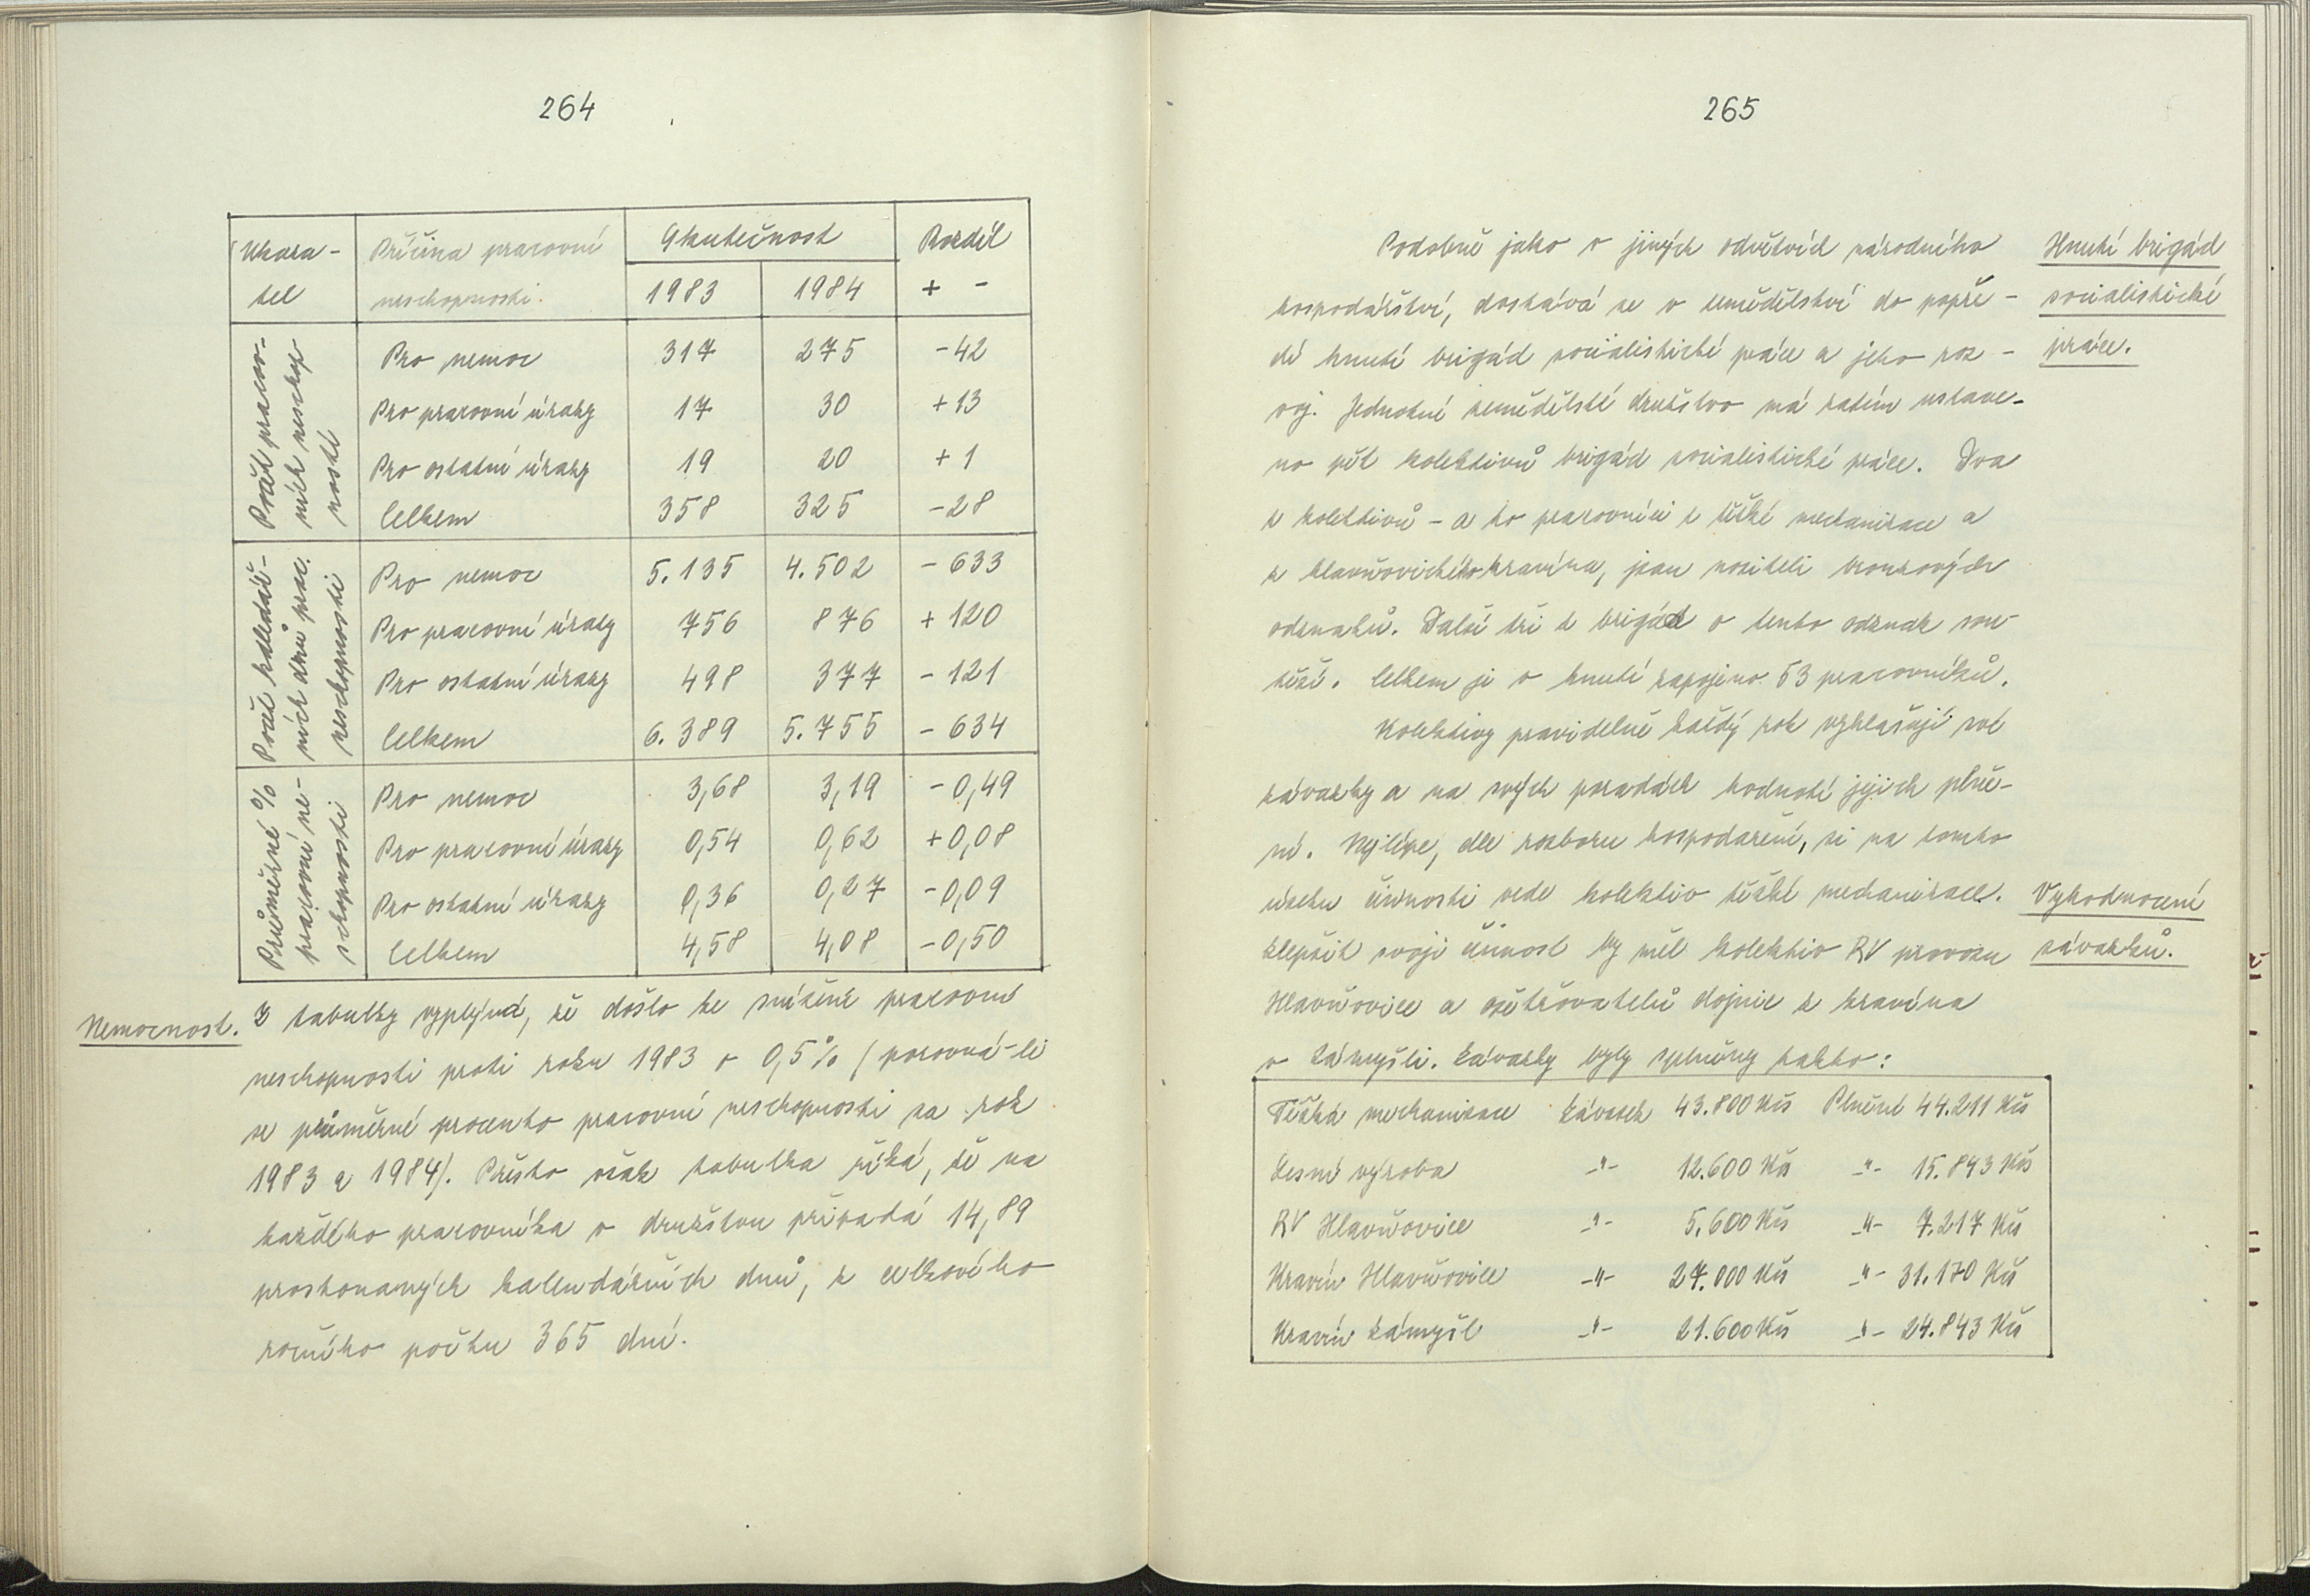 264
Ukaza-
tel
Příčina pracovní
neschopnosti
Skutečnost
Rozdíl
1983 1984 + -
Počet pracov-
ních neschop
ností
Pro nemoc 317 275 -42
Pro pracovní úrazy 17 30 +13
Pro ostatní úrazy 19 20 +1
Celkem 358 325 -28
Počet kalendář-
ních dnů prac.
neschopnosti
Pro nemoc 5.135 4.502 - 633
Pro pracovní úrazy 756 876 + 120
Pro ostatní úrazy 498 377 - 121
Celkem 6.389 5.755 - 634
Průměrné %
pracovní ne-
schopnosti
Pro nemoc 3,68 3,19 -0,49
Pro pracovní úrazy 0,54 0,62 +0,08
Pro ostatní úrazy 0,36 0,27 -0,09
Celkem 4,58 4,08 -0,50
Nemocnost.
Z tabulky vyplývá, že došlo ke snížení pracovní
neschopnosti proti roku 1983 o 0,5% (porovná-li
se průměrné procento pracovní neschopnosti za rok
1983 a 1984). Přesto však tabulka říká, že na
každého pracovníka v družstvu připadá 14,89
prostonaných kalendářních dnů, z celkového
ročního počtu 365 dní.
265
Podobně jako v jiných odvětvích národního
hospodářství, dostává se v zemědělství do popře-
dí hnutí brigád socialistické práce a jeho roz-
voj. Jednotné zemědělské družstvo má zatím ustave-
no pět kolektivů brigád socialistické práce. Dva
z kolektivů - a to pracovníci z těžké mechanizace a
z hlavňovického kravína, jsou nositeli bronzových
odznaků. Další tři z brigád o tento odznak sou-
těží. Celkem je v hnutí zapojeno 53 pracovníků.
Kolektivy pravidelně každý rok vyhlašují své
závazky a na svých poradách hodnotí jejich plně-
ní. Nejlépe, dle rozboru hospodaření, si na tomto
úseku činnosti vede kolektiv těžké mechanizace.
Zlepšit svoji činnost by měl kolektiv RV provozu
Hlavňovice a ošetřovatelů dojnic z kravína
v Zámyšli. Závazky byly splněny takto:
Hnutí brigád
socialistické
práce.
Vyhodnocení
závazků.
Těžká mechanizace Závazek 43.800 Kčs Plnění 44.211 Kčs
Lesní výroba -"- 12.600 Kčs -"- 15.843 Kčs
RV Hlavňovice -"- 5.600 Kčs -"- 7.217 Kčs
Kravín Hlavňovice -"- 27.000 Kčs -"- 31.170 Kčs
Kravín Zámyšl -"- 21.600 Kčs -"- 24.843 Kčs